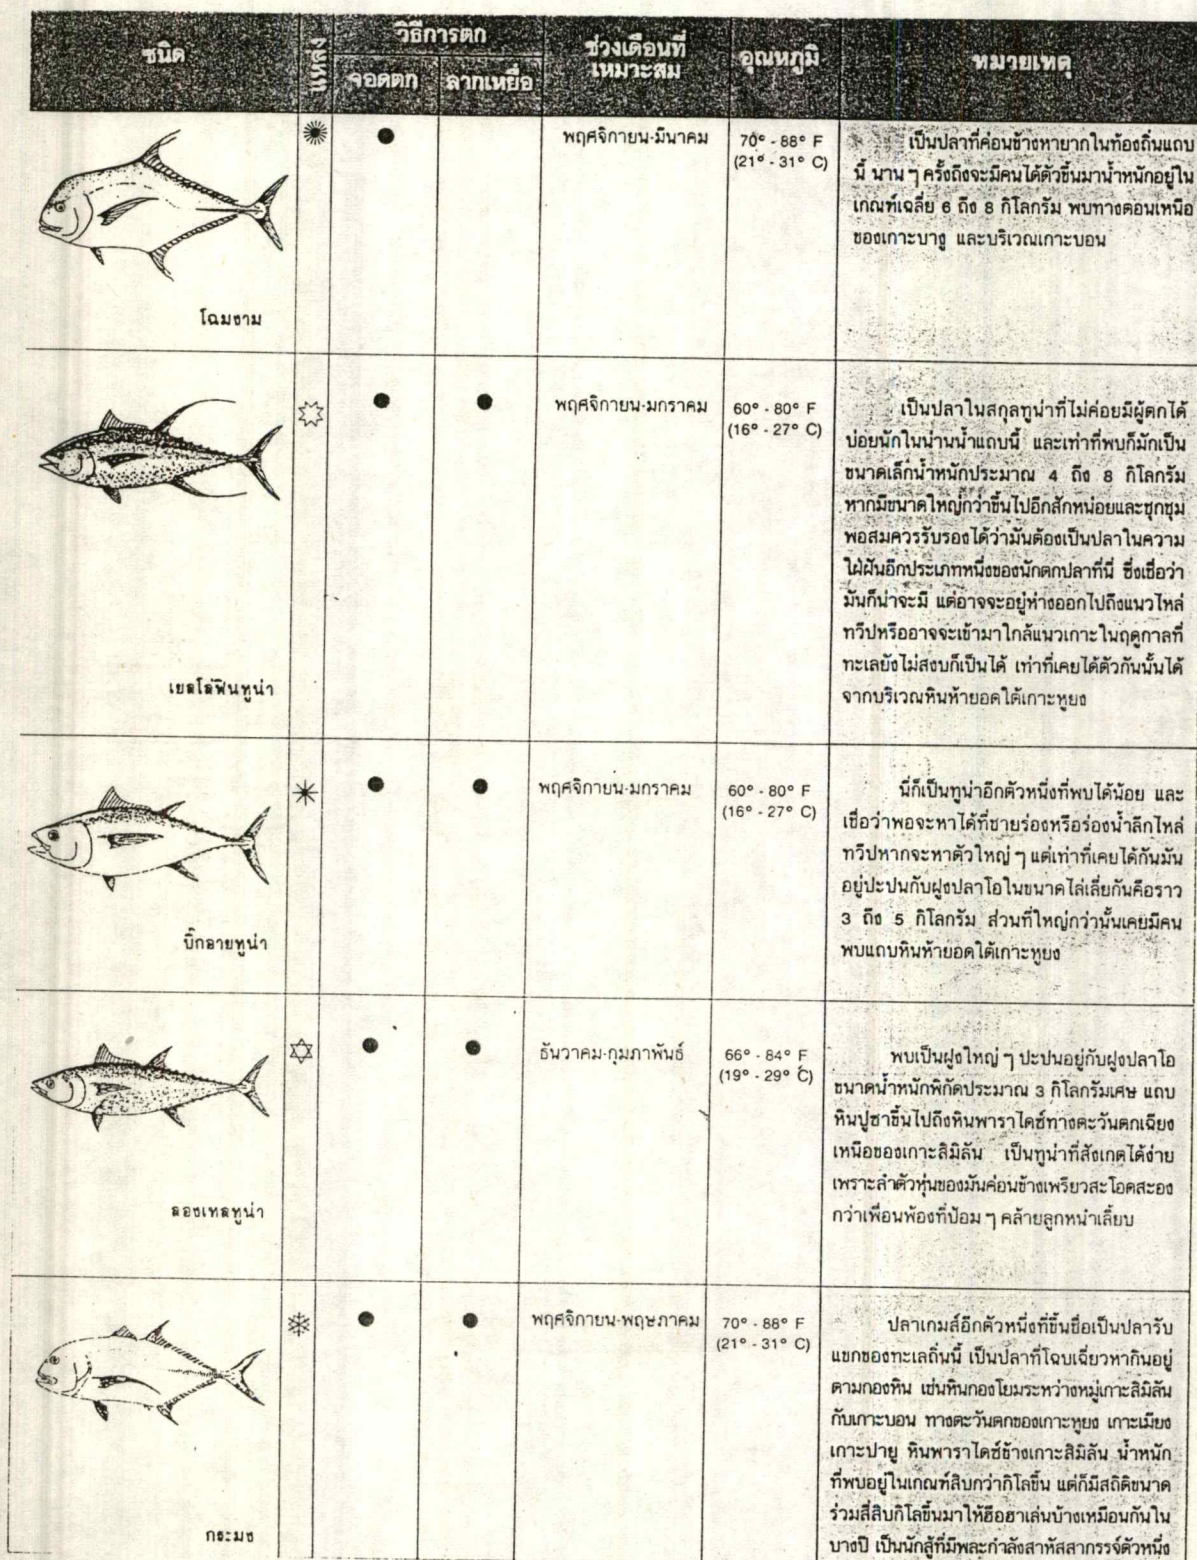 ชนิด
แหล่ง
วิธีการตก
จอดตก
ลากเหยื่อ
ช่วงเดือนที่
เหมาะสม
อุณหภูมิ
หมายเหตุ
โฉมงาม
พฤศจิกายน-มีนาคม
70° - 88° F
(21° - 31° C)
เป็นปลาที่ค่อนข้างหายากในท้องถิ่นแถบ
นี้ นาน ๆ ครั้งถึงจะมีคนได้ตัวขึ้นมาน้ำหนักอยู่ใน
เกณฑ์เฉลี่ย 6 ถึง 8 กิโลกรัม พบทางตอนเหนือ
ของเกาะบางู และบริเวณเกาะบอน
เยลโล่ฟินทูน่า
พฤศจิกายน-มกราคม
60° - 80° F
(16° - 27° C)
เป็นปลาในสกุลทูน่าที่ไม่ค่อยมีผู้ตกได้
บ่อยนักในน่านน้ำแถบนี้ และเท่าที่พบก็มักเป็น
ขนาดเล็กน้ำหนักประมาณ 4 ถึง 8 กิโลกรัม
หากมีขนาดใหญ่กว่าขึ้นไปอีกสักหน่อยและชุกชุม
พอสมควรรับรองได้ว่ามันต้องเป็นปลาในความ
ใฝ่ฝันอีกประเภทหนึ่งของนักตกปลาที่นี่ ซึ่งเชื่อว่า
มันก็น่าจะมี แต่อาจจะอยู่ห่างออกไปถึงแนวไหล่
ทวีปหรืออาจจะเข้ามาใกล้แนวเกาะในฤดูกาลที่
ทะเลยังไม่สงบก็เป็นได้ เท่าที่เคยได้ตัวกันนั้นได้
จากบริเวณหินห้ายอดใต้เกาะหูยง
บิ๊กอายทูน่า
พฤศจิกายน-มกราคม
60° - 80° F
(16° - 27° C)
นี่ก็เป็นทูน่าอีกตัวหนึ่งที่พบได้น้อย และ
เชื่อว่าพอจะหาได้ที่ชายร่องหรือร่องน้ำลึกไหล่
ทวีปหากจะหาตัวใหญ่ ๆ แต่เท่าที่เคยได้กันมัน
อยู่ปะปนกับฝูงปลาโอในขนาดไล่เลี่ยกันคือราว
3 ถึง 5 กิโลกรัม ส่วนที่ใหญ่กว่านั้นเคยมีคน
พบแถบหินห้ายอดใต้เกาะหูยง
ลองเทลทูน่า
ธันวาคม-กุมภาพันธ์
66° - 84° F
(19° - 29° C)
พบเป็นฝูงใหญ่ ๆ ปะปนอยู่กับฝูงปลาโอ
ขนาดน้ำหนักพิกัดประมาณ 3 กิโลกรัมเศษ แถบ
หินปูซาขึ้นไปถึงหินพาราไดซ์ทางตะวันตกเฉียง
เหนือของเกาะสิมิลัน เป็นทูน่าที่สังเกตได้ง่าย
เพราะลำตัวหุ่นของมันค่อนข้างเพรียวสะโอดสะอง
กว่าเพื่อนพ้องที่ป้อม ๆ คล้ายลูกหนำเลี้ยบ
กะมง
พฤศจิกายน-พฤษภาคม
70° - 88° F
(21° - 31° C)
ปลาเกมส์อีกตัวหนึ่งที่ขึ้นชื่อเป็นปลารับ
แขกของทะเลถิ่นนี้ เป็นปลาที่โฉบเฉี่ยวหากินอยู่
ตามกองหิน เช่นหินกองโยมระหว่างหมู่เกาะสิมิลัน
กับเกาะบอน ทางตะวันตกของเกาะหูยง เกาะเมียง
เกาะปายู หินพาราไดซ์ข้างเกาะสิมิลัน น้ำหนัก
ที่พบอยู่ในเกณฑ์สิบกว่ากิโลขึ้น แต่ก็มีสถิติขนาด
ร่วมสี่สิบกิโลขึ้นมาให้ฮือฮาเล่นบ้างเหมือนกันใน
บางปี เป็นนักสู้ที่มีพละกำลังสาหัสสากรรจ์ตัวหนึ่ง